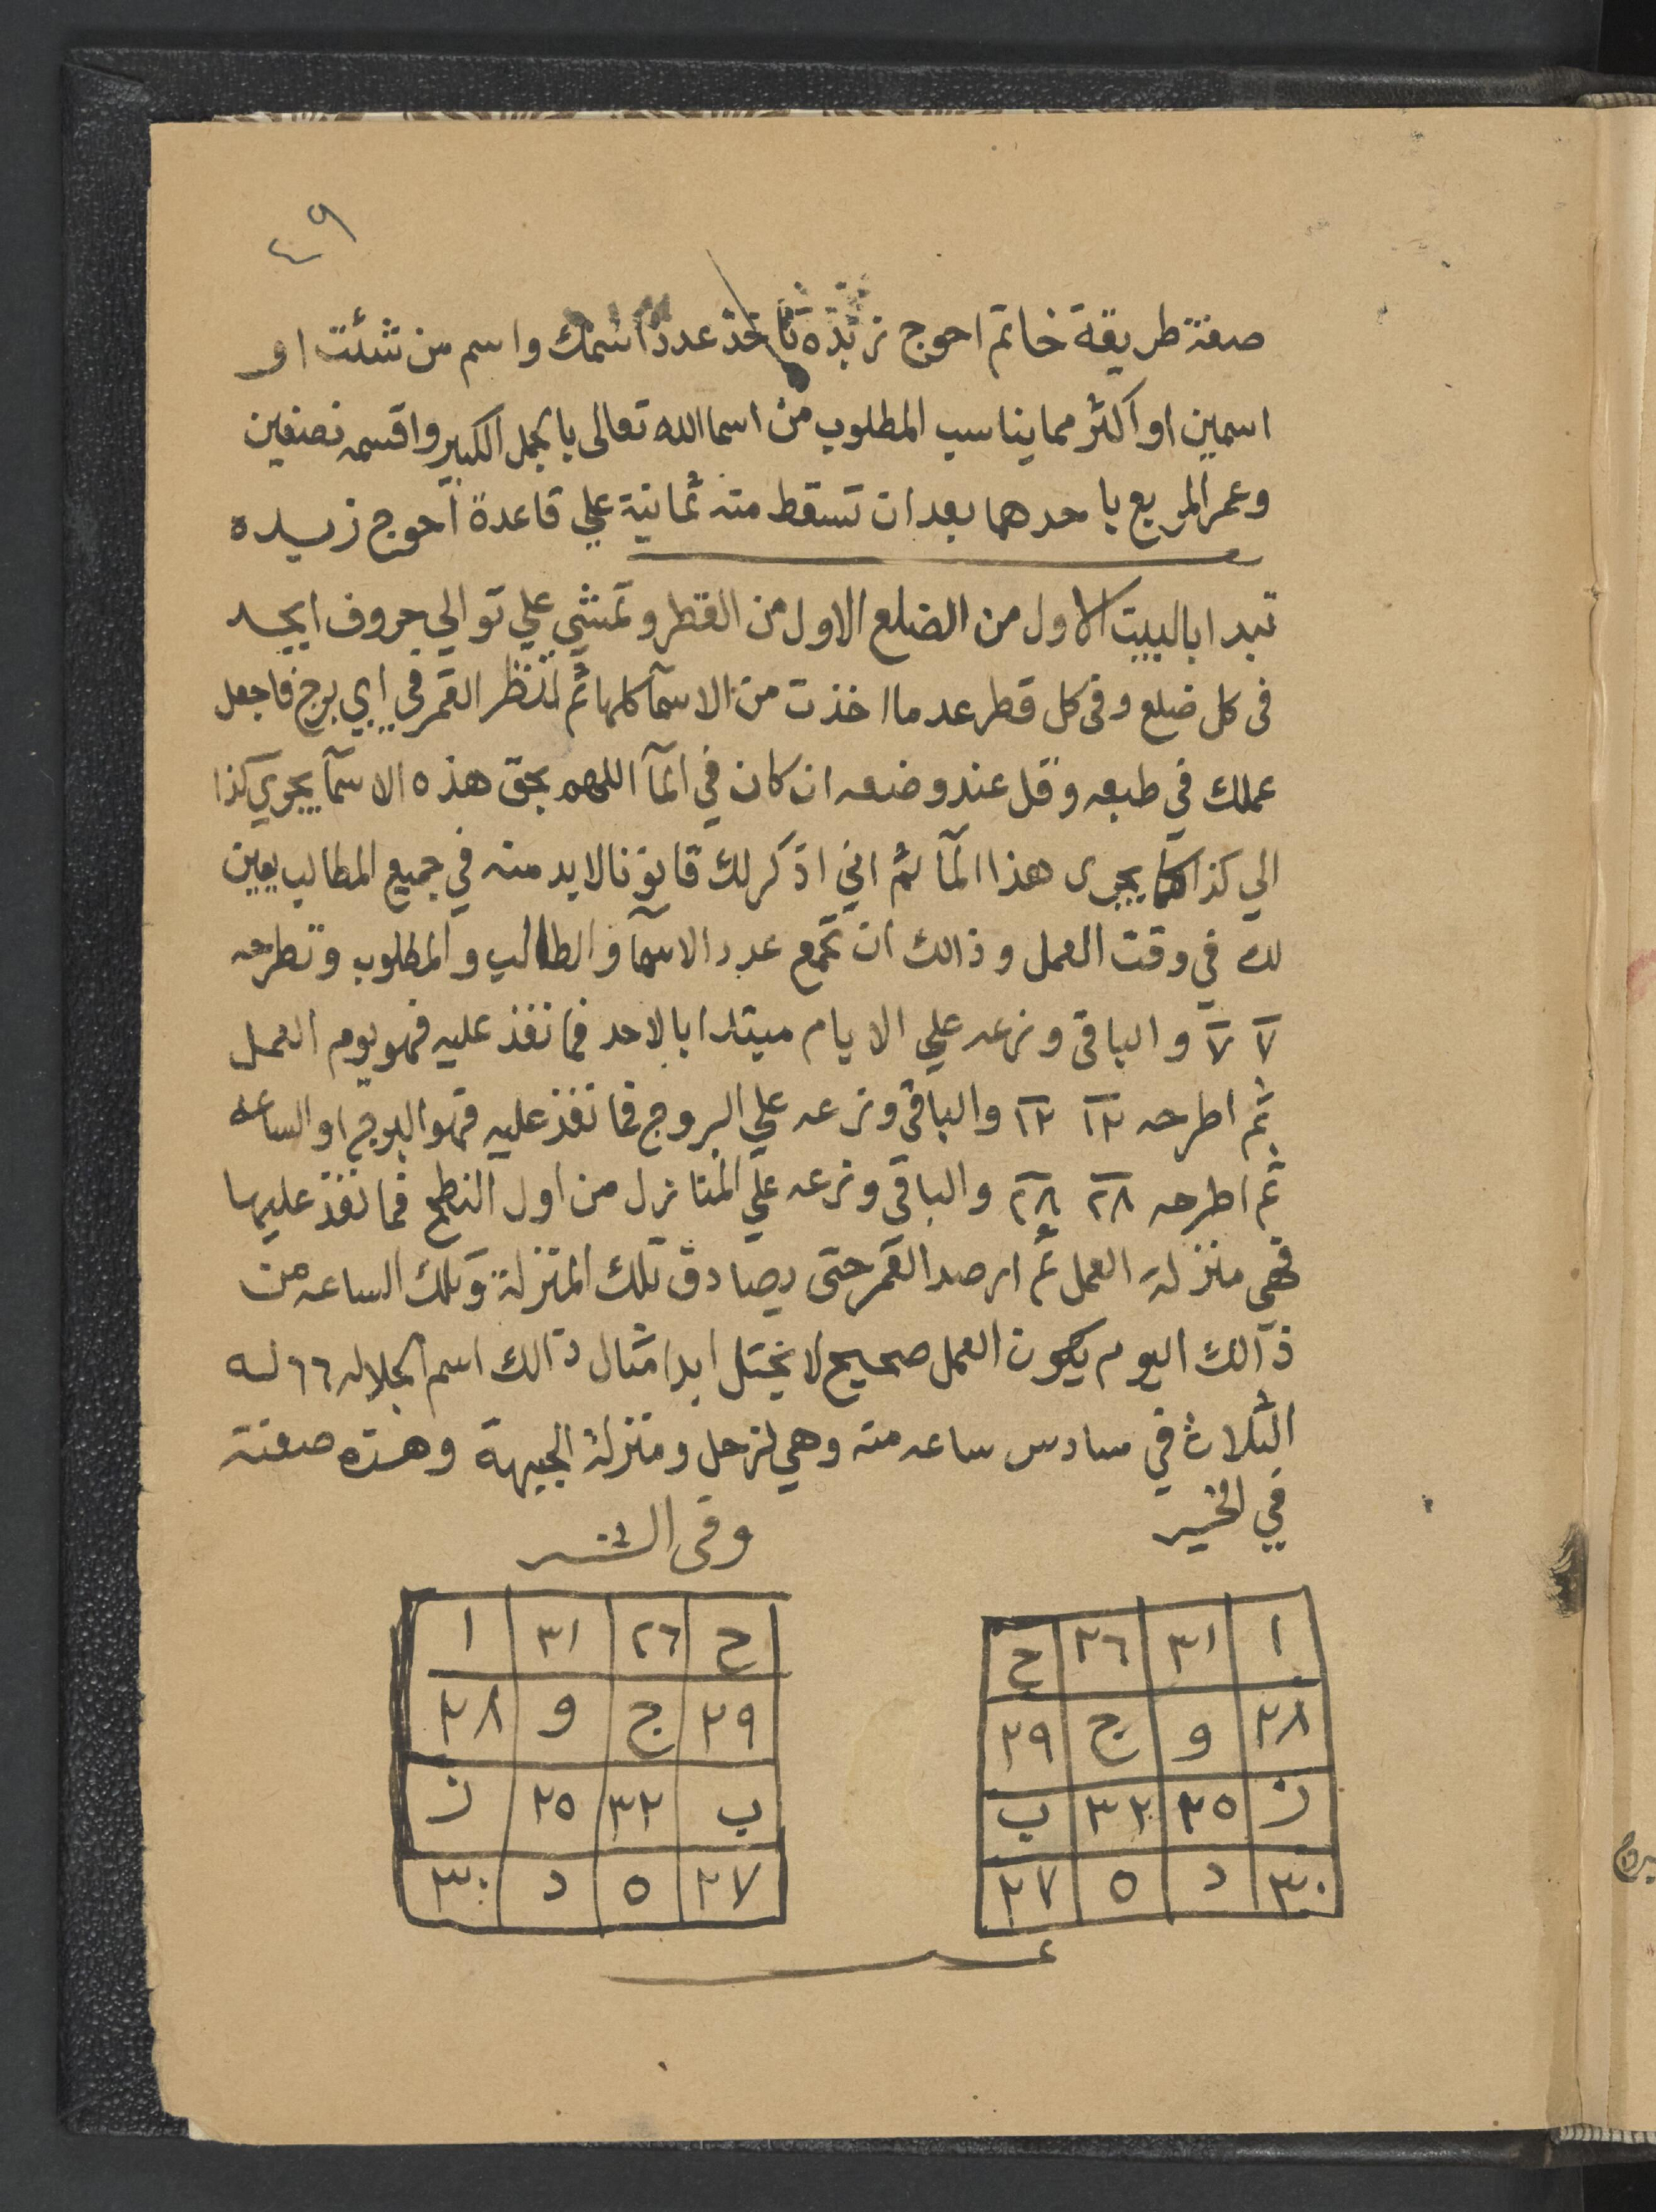 ٤٩
صفة طريقة خاتم احوج زبده تاخذ عدد اسمك واسم من شئت او
اسمين او اكثر مما يناسب المطلوب من اسما الله تعالى بالجمل الكبير واقسمه نصفين
وعمر المربع باحدهما بعد ان تسقط منه ثمانية علي قاعدة احوج زبده
تبدا بالبيت الاول من الضلع الاول من القطر وتمشي علي توالي حروف ابجد
فى كل ضلع وفى كل قطر عدد ما اخذت من الاسمآ كلها ثم انتظر القمر في اي برج فاجعل
عملك في طبعه وقل عند وضعه ان كان في المآ اللهم بحق هذه الاسمآ يجري كذا
الي كذا كما يجرى هذا المآ ثم اني اذكر لك قانونا لابد منه في جميع المطالب يعين
لك في وقت العمل وذالك ان تجمع عدد الاسمآ والطالب والمطلوب وتطرحه
٧ ٧ والباقى وزعه علي الايام مبتدا بالاحد فما نفذ عليه فهو يوم العمل
ثم اطرحه ١٢ ١٢ والباقي وزعه علي البروج فما نفذ عليه فهو البرج او الساعه
ثم اطرحه ٢٨ ٢٨ والباقي وزعه علي المنازل من اول النطح فما نفذ عليها
فهي منزلة العمل ثم ارصد القمر حتى يصادق تلك المنزلة وتلك الساعه من
ذالك اليوم يكون العمل صحيح لا يختل ابدا مثال ذالك اسم الجلاله ٦٦ له
الثلاث في سادس ساعه منه وهي لزحل ومنزلة الجبهة وهذه صفته
في الخير
وفى الشر
ا ٣١ ٢٦ ح
٢٨ و ج ٢٩
ز ٢٥ ٣٢ ب
٣٠ د ٥ ٢٧
ح ٢٦ ٣١ ا
٢٩ ج و ٢٨
ب ٣٢ ٢٥ ز
٢٧ ٥ د ٣٠